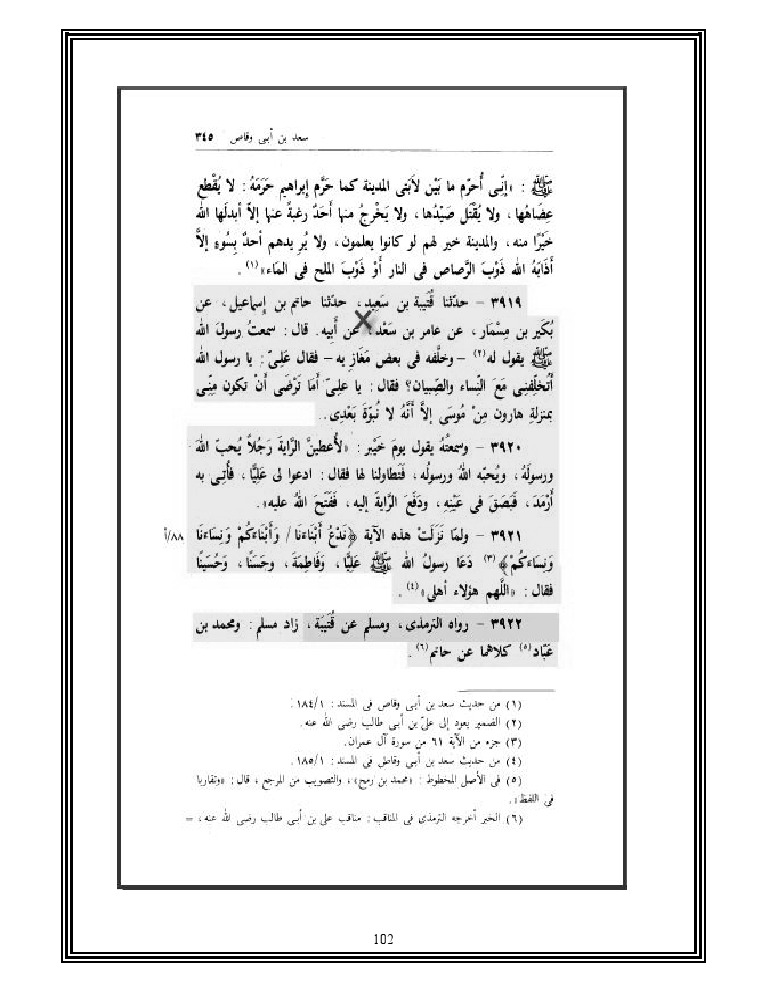 سعد بن أبى وقاص ٣٤٥
ﷺ : «إنِّى أُحَرِّم ما بَيْن لاَبَتَى المدينة كما حَرَّم إبراهيم حَرَمَهُ : لا يُقْطع
عِضَاهُها ، ولا يُقْتَل صَيْدُها ، ولا يَخْرجُ منها أَحَدٌ رغبةً عنها إلاّ أبدلَها الله
خَيْرًا منه، والمدينة خير لهم لو كانوا يعلمون، ولا يُرِيدهم أحدٌ بِسُوءٍ إلاَّ
أَذَابَهُ الله ذَوْبَ الرَّصاص فى النار أَوْ ذَوْبَ الملح فى المَاء» (١) .
٣٩١٩ - حدّثنا قُتَيبة بن سَعِيد، حدّثنا حاتم بن إسماعيل، عن
بُكَير بن مِسْمَار، عن عامر بن سَعْد، عن أَبِيه. قال: سمعتُ رسولَ الله
ﷺ يقول له(٢) - وخلَّفه فى بعض مَغَازِيه - فقال عَلىّ: يا رسول الله
أَتُخلِّفنِى مَعَ النِّساء والصِّبيان؟ فقال: يا علىّ أَمَا تَرْضَى أَنْ تكون مِنِّى
بمنزلةِ هارون مِنْ مُوسَى إلاَّ أنَّهُ لا نُبوّةَ بَعْدِى..
٣٩٢٠ - وسمعتُهُ يقول يومَ خَيْبر : «لأُعطينَّ الرَّايةَ رَجُلاً يُحبّ اللهَ
ورسولَهُ، ويُحبّه اللهُ ورسولُه، فَتطاولنا لها فقال: ادعوا لى عَلِيًّا، فأُتِى به
أَرْمَدَ، فَبَصَقَ فى عَيْنِهِ، ودَفَعَ الرَّايةَ إليه، فَفَتَحَ اللهُ عليه».
٣٩٢١ - ولمّا نَزَلَتْ هذه الآية ﴿نَدْعُ أَبْنَاءَنَا / وَأَبْنَاءَكُمْ وَنِسَاءَنَا ٨٨/أ
وَنِسَاءَكُمْ﴾ (٣) دَعَا رسولُ الله ﷺ عَلِيًّا، وَفَاطِمَةَ، وحَسَنًا، وَحُسَيْنًا
فقال : «اللَّهم هؤلاء أهلى» (٤) .
٣٩٢٢ - رواه الترمذى، ومسلم عن قُتَيبَة، زاد مسلم: ومحمد بن
عَبَّاد(٥) كلاهما عن حاتم(٦).
(١) من حديث سعد بن أبى وقاص فى المسند: ١٨٤/١.
(٢) الضمير يعود إلى علىّ بن أبى طالب رضى الله عنه.
(٣) جزء من الآية ٦١ من سورة آل عمران.
(٤) من حديث سعد بن أبى وقاص فى المسند: ١٨٥/١.
(٥) فى الأصل المخطوط: «محمد بن رمح»، والتصويب من المرجع، قال: «وتقاربا
فى اللفظ».
(٦) الخبر أخرجه الترمذى فى المناقب: مناقب على بن أبى طالب رضى الله عنه، =
102